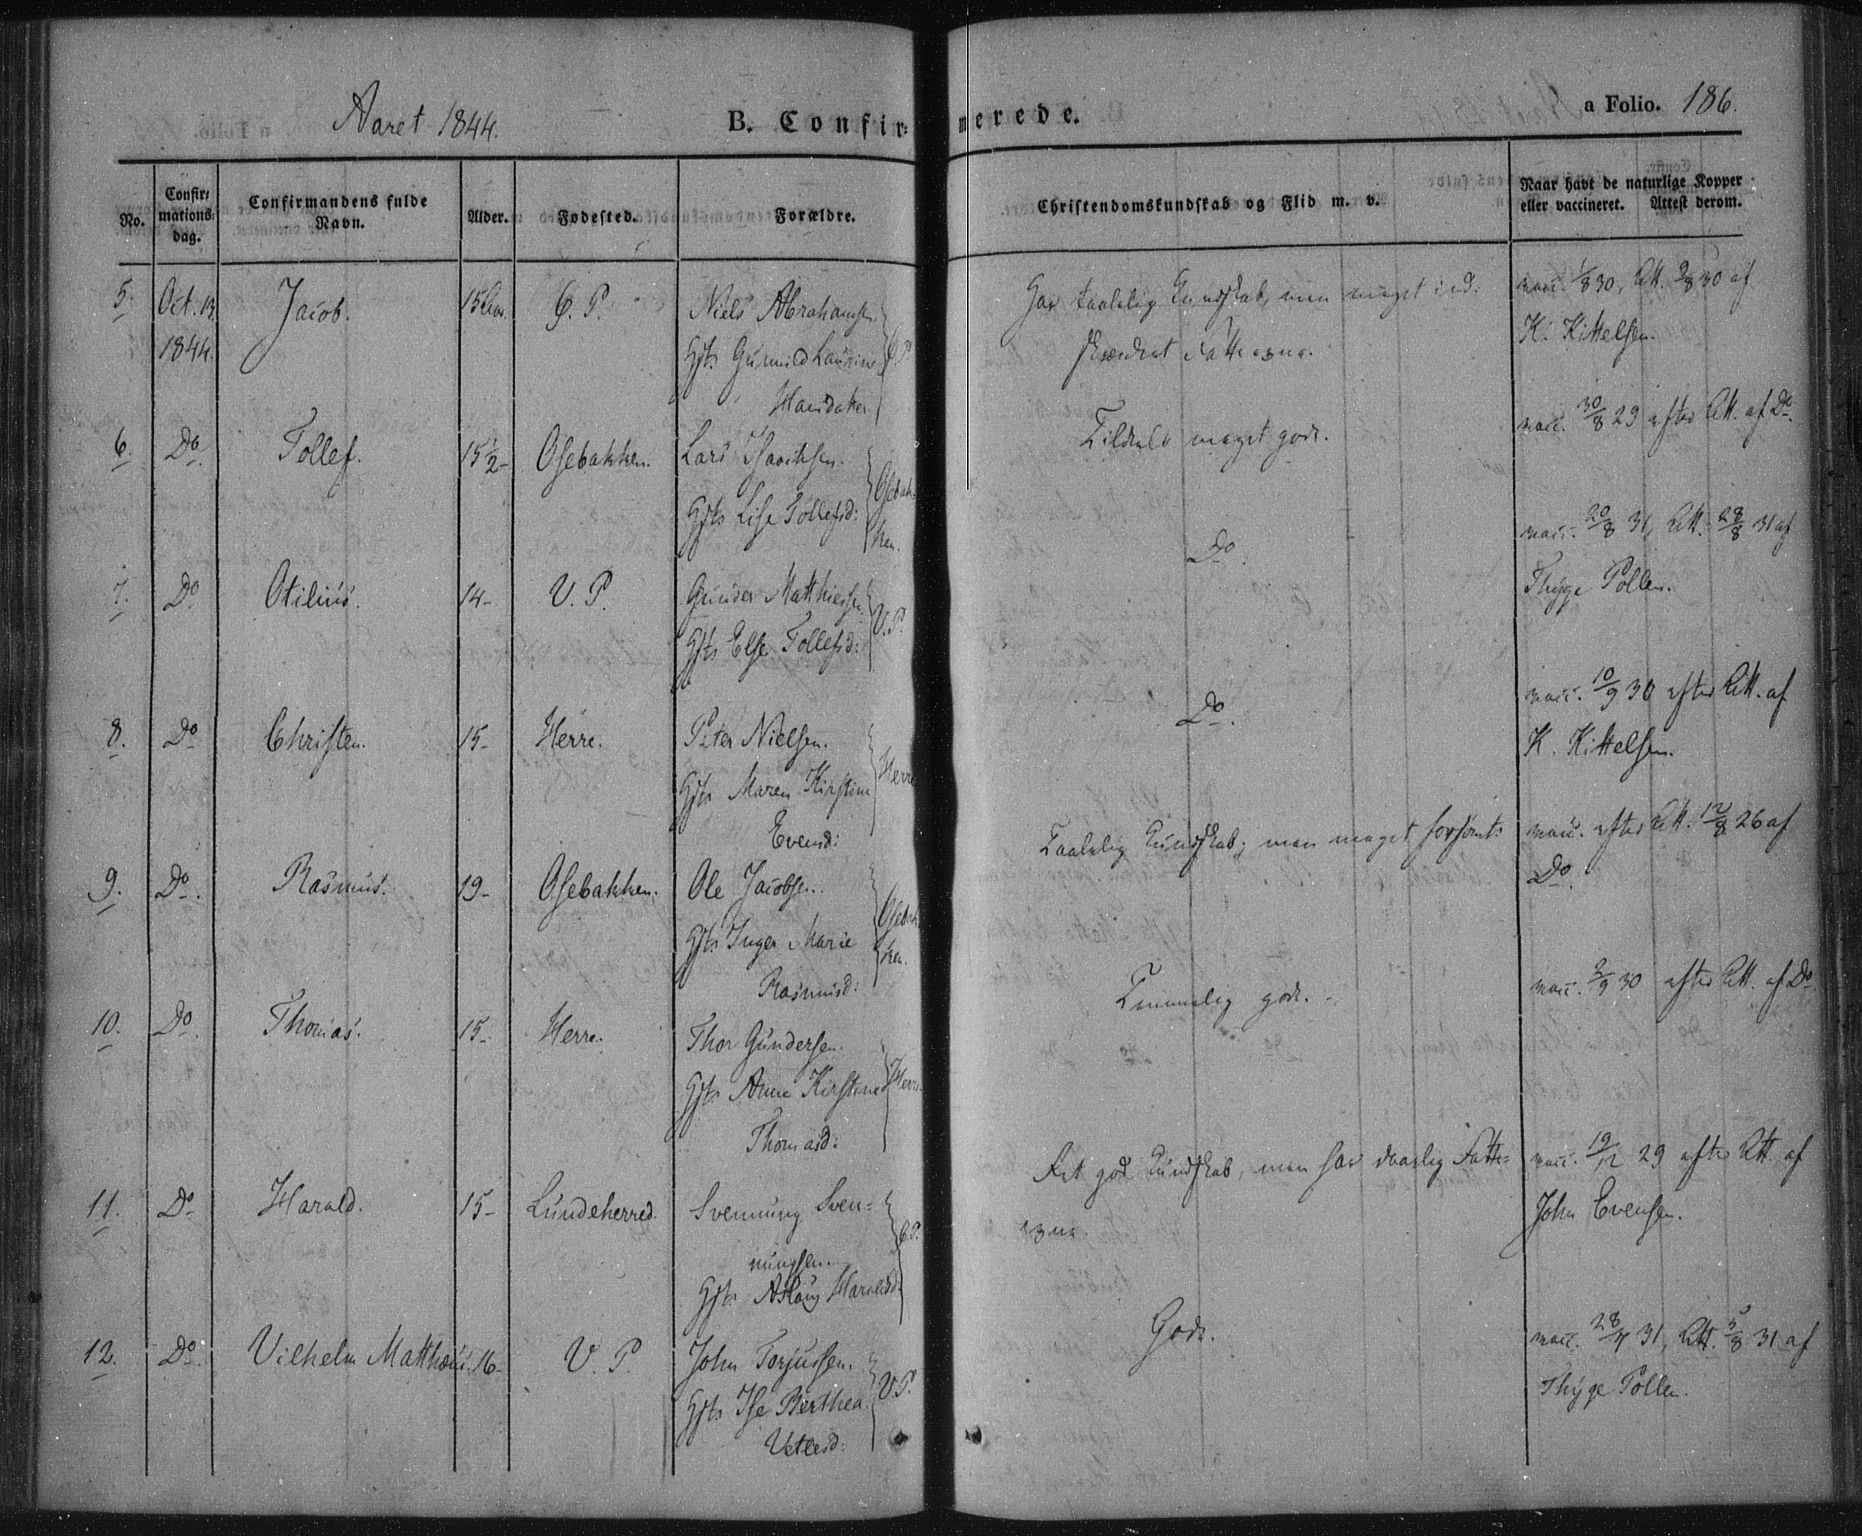 Aaret 1844.
B. Confirmerede.
a Folio. 186.
No.
Confirmations dag.
Confirmandens fulde Navn.
Alder.
Fødested.
Forældre.
Christendomskundskab og Flid m. v.
Naar havt de naturlige Kopper eller vaccineret. Attest derom.
5. Oct. 13. Jacob. 15 Ø. P. Niels Abrahamsen.
1844. Gjts. Gunnild
Har taalelig Kundskab, men meget ind-
skrænket Fatteevne.
vacc. 1/8 30, Att. 9/8 30 af
K. Kittelsen.
6. Do Tollef. 15 1/2 - Osebakken. Lars Isachsen. Osebak-
Gjts Lise Tollefsd: ken.
Tildeels meget godt.
vacc. 30/8 29 efter Att. af Do.
7. Do Otilius. 14 - V. P. Gunder Matthiesen. V. P.
Gjts Else Tollefsd:
Do.
vacc. 20/8 31, Att. 28/8 31 af
Thyge Pollen.
8. Do Christen. 15 - Herre. Peter Nielsen. Herre
Gjts Maren Kirstine
Evensd:
Do.
vacc. 10/9 30 efter Att. af
K. Kittelsen.
9. Do. Rasmus. 19 - Osebakken. Ole Jacobsen. Osebak-
Gjts Inger Marie ken.
Rasmusd:
Taalelig Kundskab; men meget forsømt.
vacc. efter Att. 12/8 26 af
Do.
10. Do. Thomas. 15 - Herre. Thor Gundersen. Herre
Gjts. Anne Kirstine
Thomasd:
Temmelig godt.
vacc. 2/9 30 efter Att. af Do
11. Do Harald. 15 - Lundeherred. Svennung Sven-
nungsen.
Gjts. Aslaug Haraldsd:
Ret god Kundskab, men har daarlig Fatte-
evne.
vacc. 19/12 29 efter Att. af
John Evensen.
12. Do. Vilhelm Matthæus. 16 - V. P John Torjussen. V. P.
Gjts Ise Berthea
Vetlesd:
Godt.
vacc. 28/7 31, Att. 5/8 31 af
Thyge Pollen.